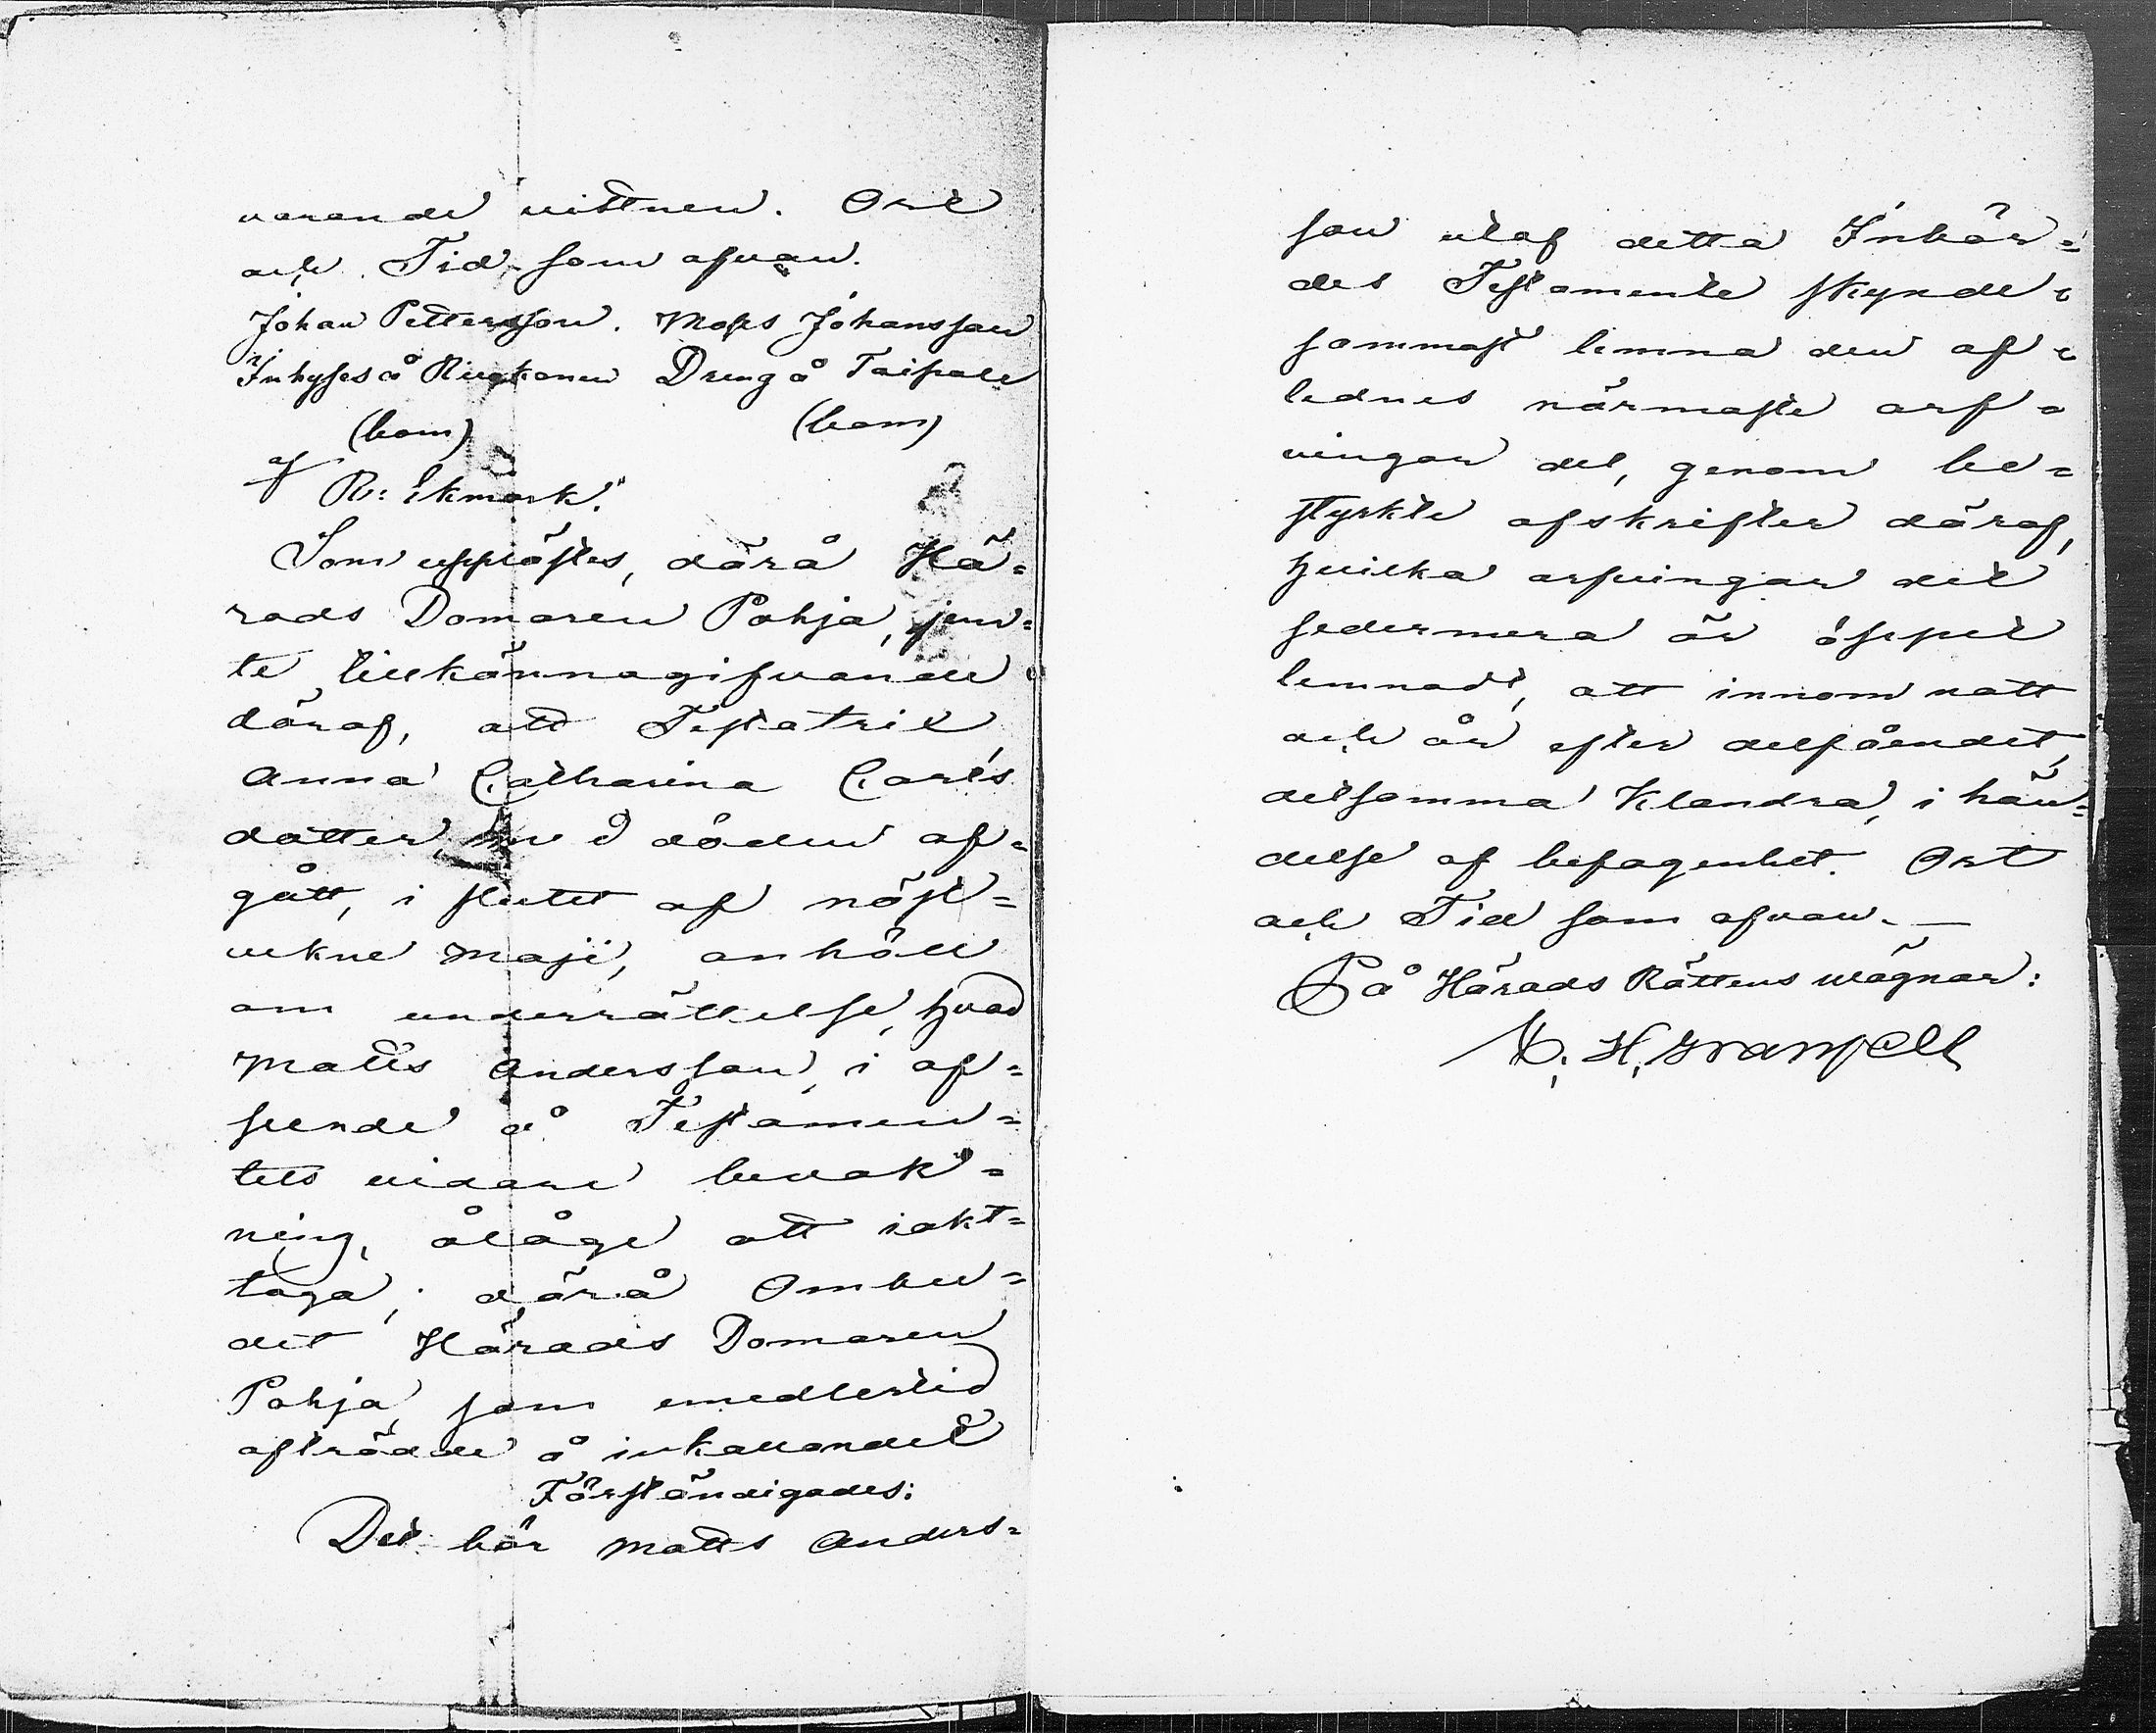 varande vittnen. Ort
och Tid som ofvan.
Johan Pettersson. Mats Johansson
Inhyses å Dreng å Taipale
(bom) (bom)
af R: Ekmark."
Som upplästes, därå Hä=
rads Domaren Pohja, jem=
te tillkännagifvande
däraf, att Testatrix,
Anna Catharina Carls
dotter, med döden af=
gått, i slutet af näst=
vekne Maji, anhöll
om underrättelse, hvad
Matts Andersson, i af=
seende å Testamen=
tets vidare bevak=
ning, ålåge att iakt=
taga; därå Ombu=
det Härads Domaren
Pohja, som emedlertid
afträdde å inkallandet
Förständigades:
Det bör Matts Anders=
son utaf detta Inbör=
des Testamente skynde=
sammast lemna den af=
lednes närmaste arf=
vingar del, genom be=
styrkte afskrifter däraf,
hvilka arfvingar det
sedermera är öppet
lemnadt, att innom natt
och år efter delfåendet,
detsamma Klandra, i hän=
delse af befogenhet. Ort
och Tid som ofvan. —
På Härads Rättens wägnar: